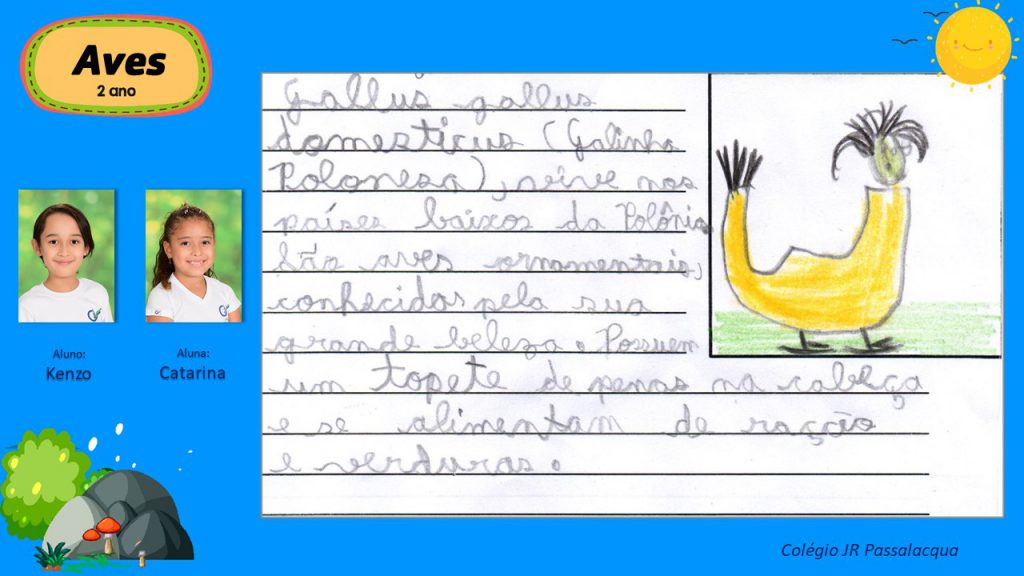 Aves
2 ano
Gallus gallus
domesticus (Galinha
Polonesa), vive nos
países baixos da Polônia
São aves ornamentais,
conhecidas pela sua
grande beleza. Possuem
um topete de penas na cabeça
e se alimentam de ração
e verduras.
Aluno:
Kenzo
Aluna:
Catarina
Colégio JR Passalacqua